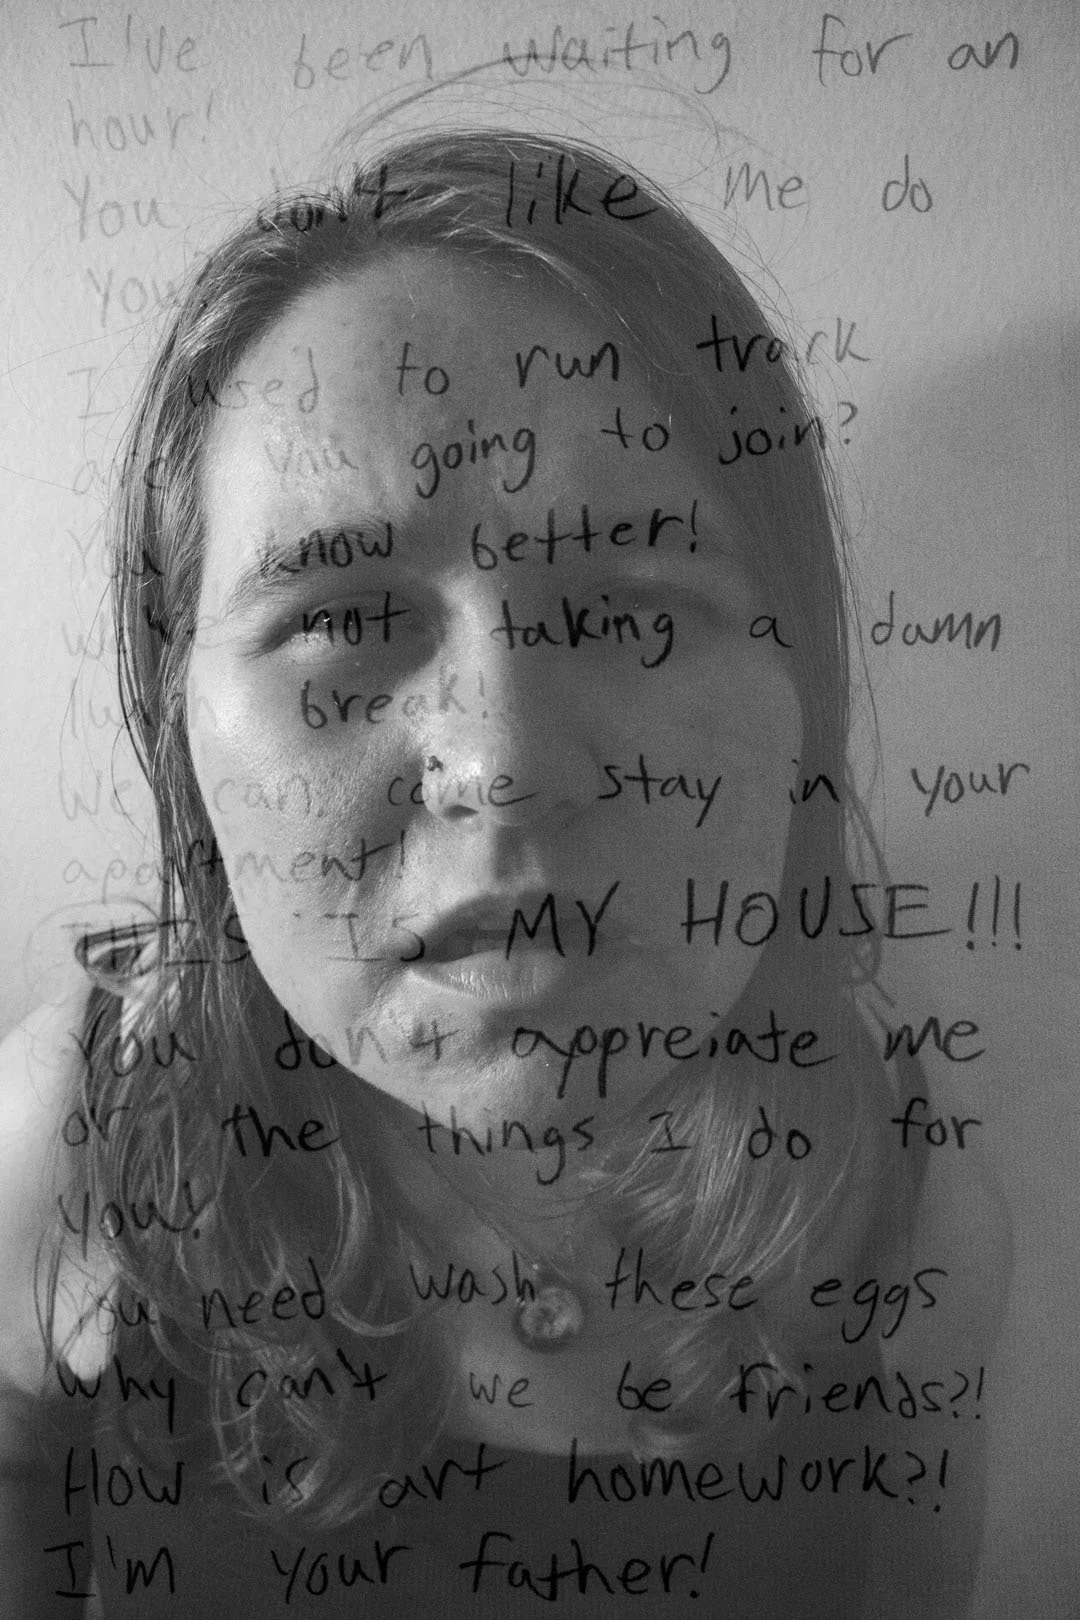 I've been waiting for an
hour!
You don't like me do
you?
I used to run track
are you going to join?
You know better!
we're not taking a damn
lunch break!
We can come stay in your
apartment!
THIS IS MY HOUSE!!!
You don't appreiate me
or the things I do for
you!
You need wash these eggs
Why can't we be friends?!
How is art homework?!
I'm your father!